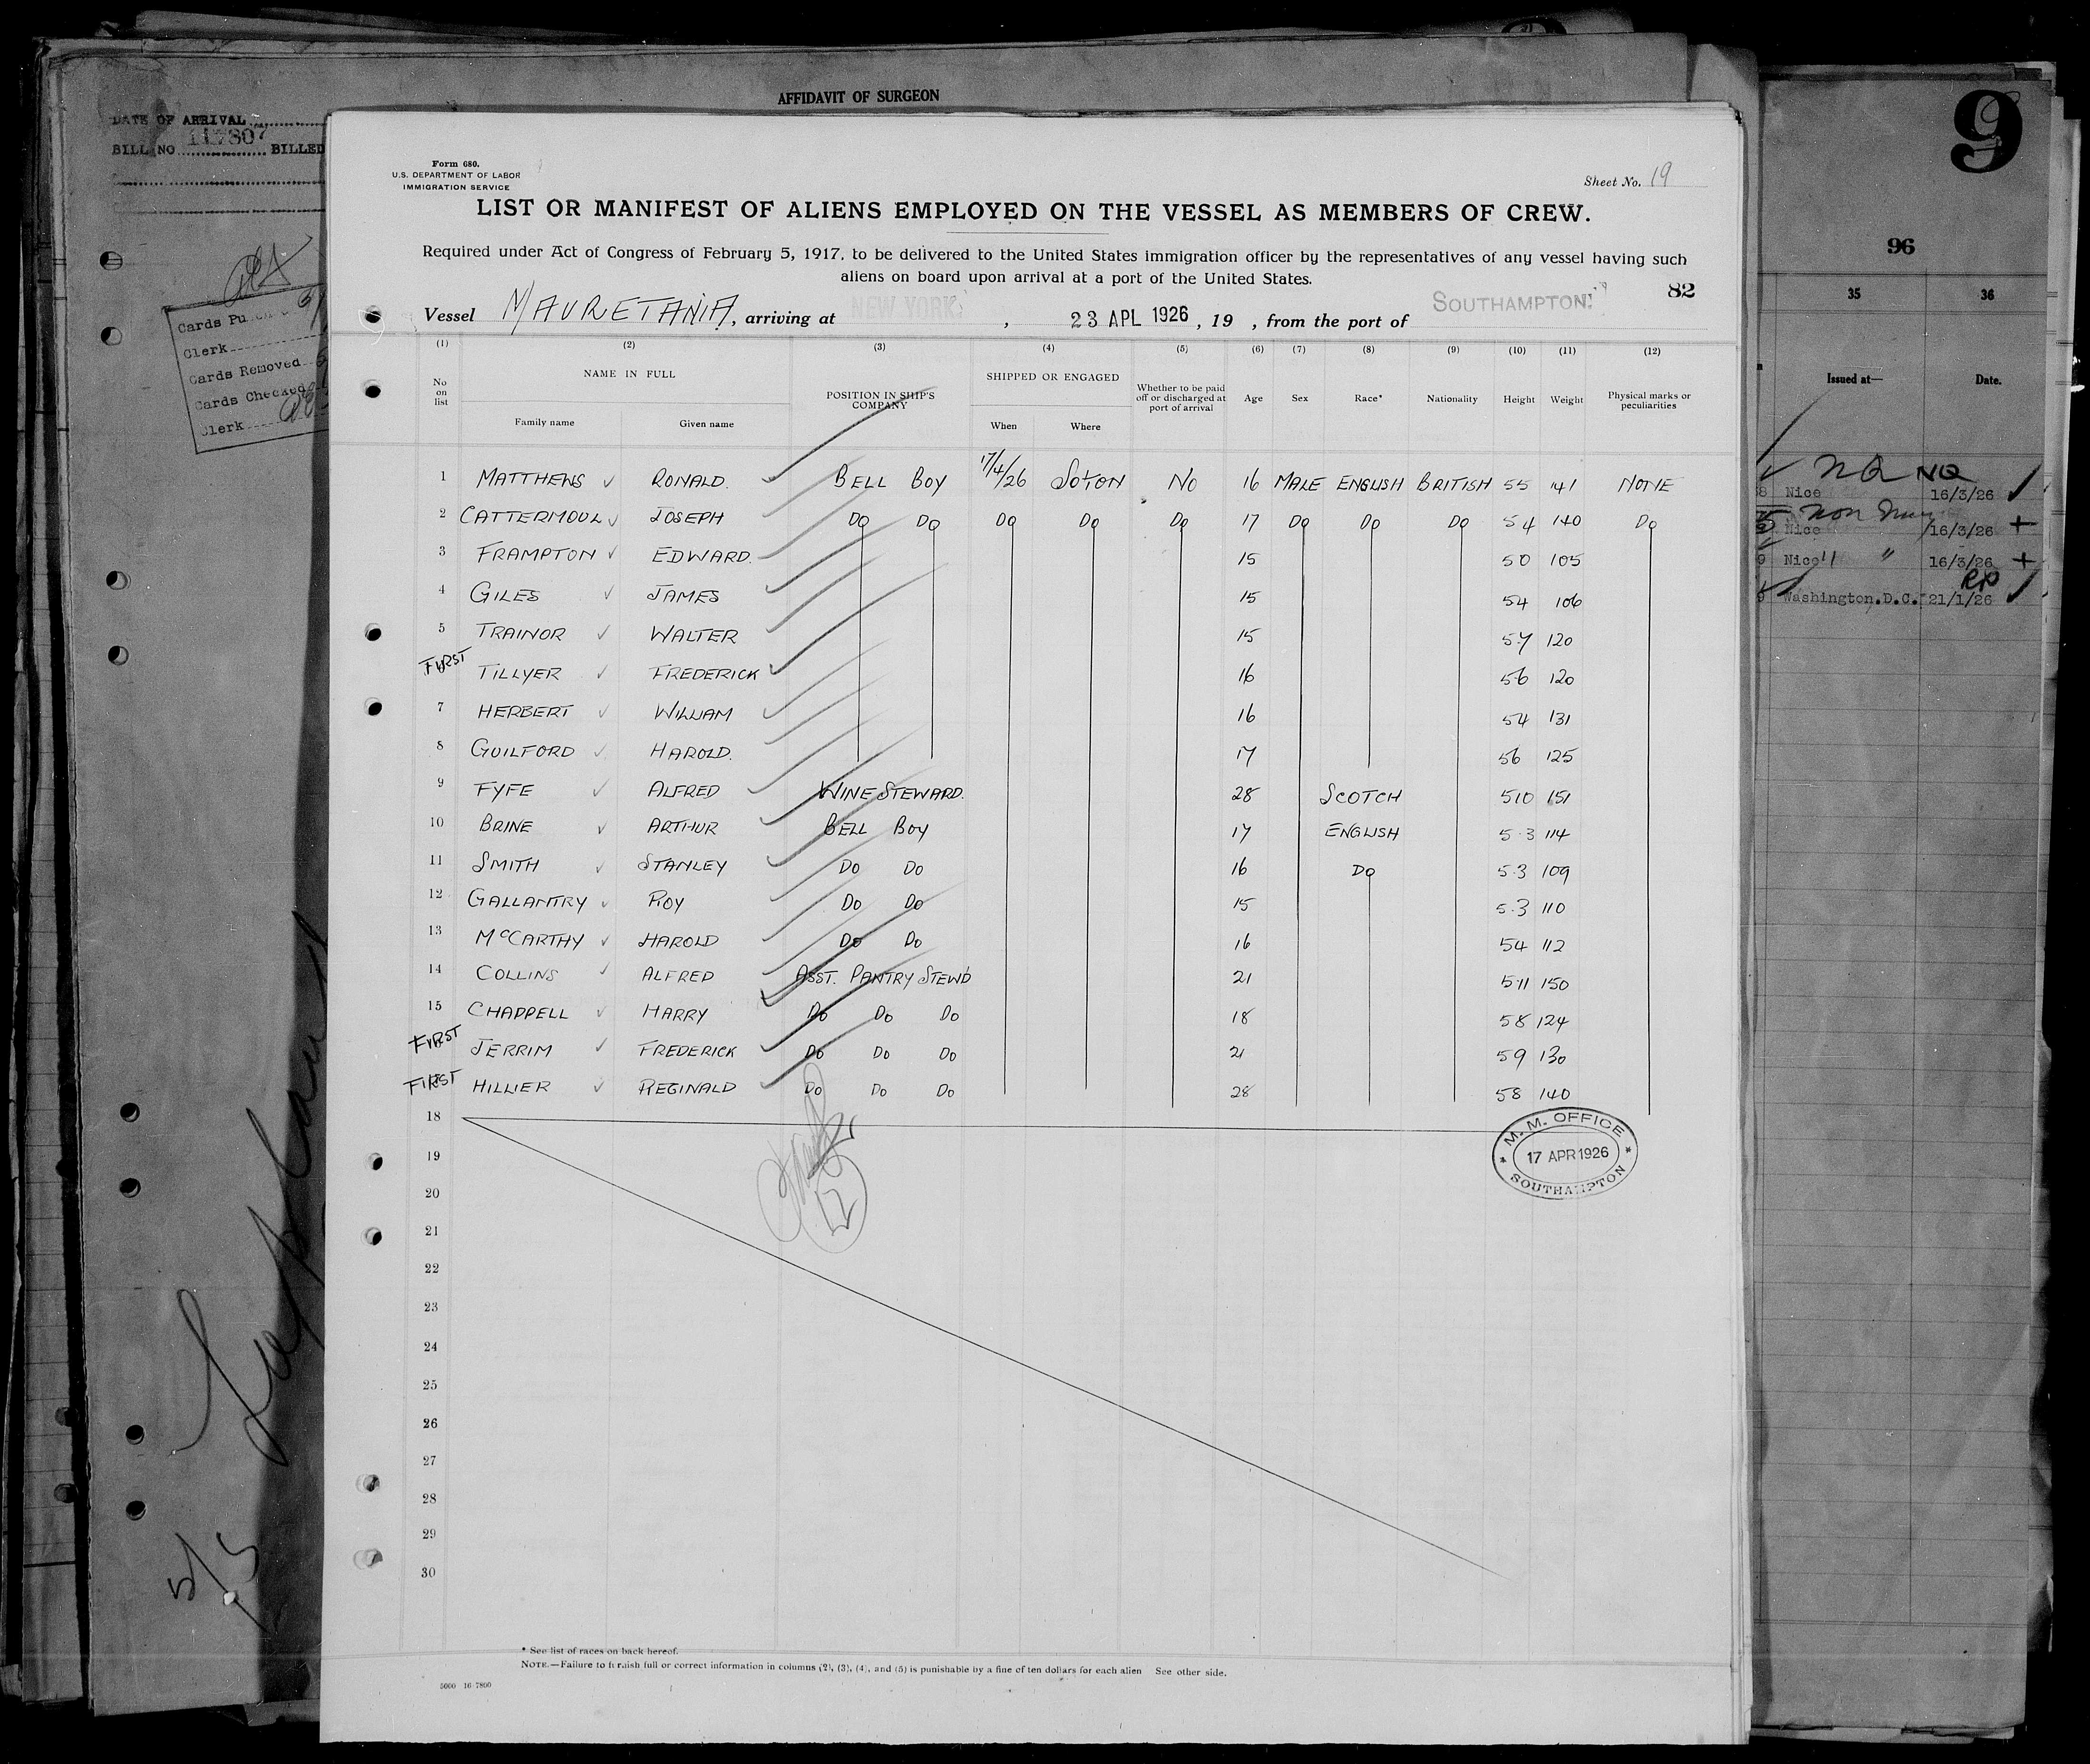 AFFIDAVIT OF SURGEON
DATE OF ARRIVAL
BILL NO 117807 BILLED
Cards Pu
Clerk
Cards Removed
Cards Checked
Clerk
9
96
35 36
Issued at— Date.
NQ NQ
Nice 16/3/26
Non
Nice 16/3/26 +
Nice " " 16/3/26 +
Washington.D.C. 21/1/26
Form 680.
U.S. DEPARTMENT OF LABOR
IMMIGRATION SERVICE
Sheet No. 19
LIST OR MANIFEST OF ALIENS EMPLOYED ON THE VESSEL AS MEMBERS OF CREW.
Required under Act of Congress of February 5, 1917, to be delivered to the United States immigration officer by the representatives of any vessel having such
aliens on board upon arrival at a port of the United States.
82
Vessel MAURETANIA, arriving at NEW YORK, 23 APL 1926, 19 , from the port of SOUTHAMPTON.
(1) (2) (3) (4) (5) (6) (7) (8) (9) (10) (11) (12)
No on list NAME IN FULL POSITION IN SHIP'S COMPANY SHIPPED OR ENGAGED Whether to be paid off or discharged at port of arrival Age Sex Race* Nationality Height Weight Physical marks or peculiarities
Family name Given name When Where
1 MATTHEWS RONALD. BELL BOY 17/4/26 SOTON NO 16 MALE ENGLISH BRITISH 55 141 NONE
2 CATTERMOUL JOSEPH DO DO DO DO DO 17 DO DO DO 54 140 DO
3 FRAMPTON EDWARD. 15 50 105
4 GILES JAMES 15 54 106
5 TRAINOR WALTER 15 57 120
FIRST TILLYER FREDERICK 16 56 120
7 HERBERT WILLIAM 16 54 131
8 GUILFORD HAROLD. 17 56 125
9 FYFE ALFRED WINE STEWARD. 28 SCOTCH 510 151
10 BRINE ARTHUR BELL BOY 17 ENGLISH 5.3 114
11 SMITH STANLEY DO DO 16 DO 5.3 109
12 GALLANTRY ROY DO DO 15 5.3 110
13 McCARTHY HAROLD DO DO 16 54 112
14 COLLINS ALFRED ASST. PANTRY STEWD 21 511 150
15 CHAPPELL HARRY DO DO DO 18 58 124
FIRST JERRIM FREDERICK DO DO DO 21 59 130
FIRST HILLIER REGINALD DO DO DO 28 58 140
18
M.M. OFFICE
17 APR 1926
SOUTHAMPTON
19
20
21
22
23
24
25
26
27
28
29
30
17
5/5
* See list of races on back hereof.
NOTE.—Failure to furnish full or correct information in columns (2), (3), (4), and (5) is punishable by a fine of ten dollars for each alien See other side.
5000 16 7800